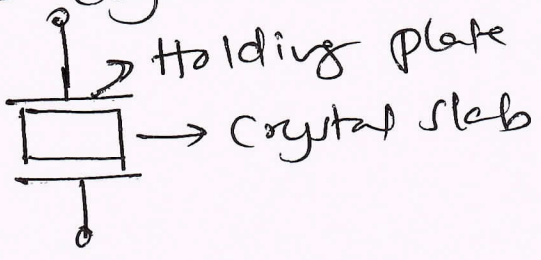 Holding plate
Crystal slab